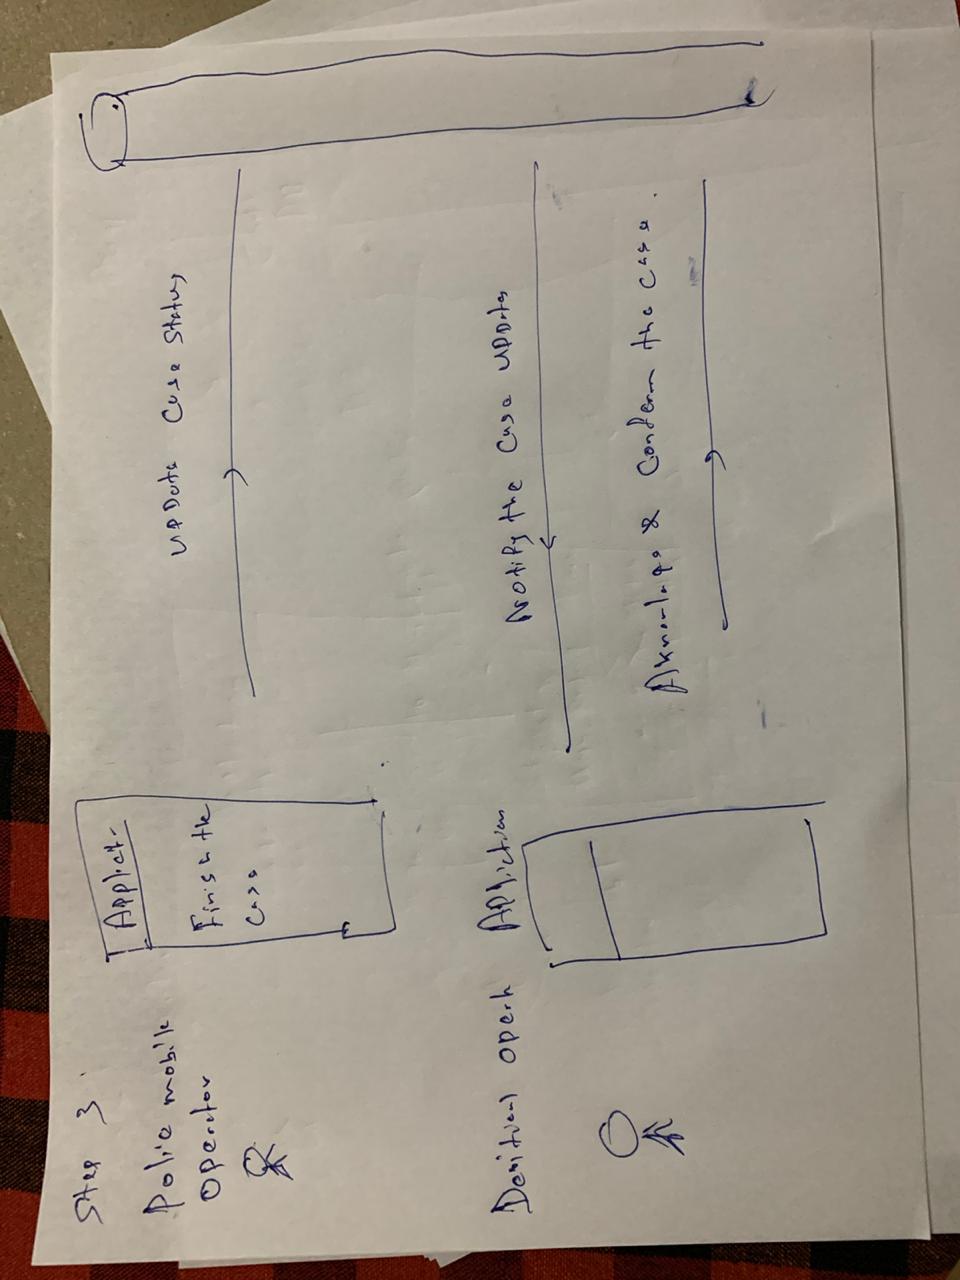 Step 3
Police mobile
operator
Applict-
Finish the
Case
UPData Case Status
Opert
APliction
Notify the Case UPDates
Aknowlage & Confirm the case.